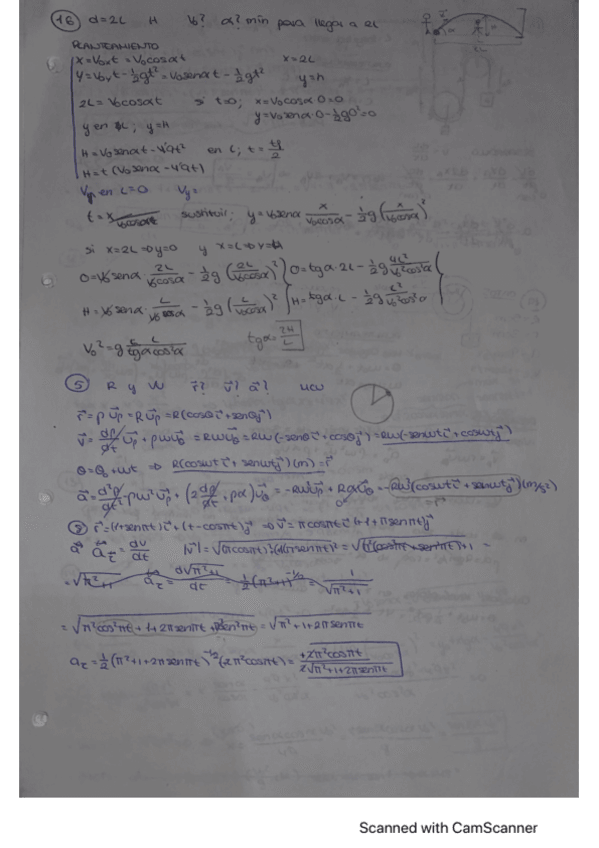 16 d=2L H V₀? α? mín para llegar a 2L
PLANTEAMIENTO
x=V₀ₓt=V₀cosαt x=2L
y=V₀ᵧt-½gt²=V₀senαt-½gt² y=H
2L=V₀cosαt si t=0; x=V₀cosα·0=0
y=V₀senα·0-½g0²=0
y en L; y=H
H=V₀senαt-4'9t² en L; t=
H=t(V₀senα-4'9t)
Vᵧ en L=0 Vᵧ=
t= x/V₀cosα sustituir; y=V₀senα x/V₀cosα - ½g(x/V₀cosα)²
si x=2L⇒y=0 y x=L⇒y=H
0=V₀senα·2L/V₀cosα - ½g(2L/V₀cosα)² } 0=tgα·2L-½g 4L²/V₀²cos²α
H=V₀senα·L/V₀cosα - ½g(L/V₀cosα)² } H=tgα·L-½g L²/V₀²cos²α
V₀²=g L/tgαcos²α tgα=2H/L
5 R y W r⃗? v⃗? a⃗? MCU
r⃗=ρu⃗ρ=Ru⃗ρ=R(cosθi⃗+senθj⃗)
v⃗=dρ/dt u⃗ρ+ρωu⃗θ=Rωu⃗θ=Rω(-senθi⃗+cosθj⃗)=Rω(-senωti⃗+cosωtj⃗)
θ=θ₀+ωt ⇒ R(cosωti⃗+senωtj⃗)(m)=r⃗
a⃗=d²ρ/dt²-ρω²u⃗ρ+(2dρ/dt+ρα)u⃗θ=-Rω²u⃗ρ+Rαu⃗θ=-Rω²(cosωti⃗+senωtj⃗)(m/s²)
8 r⃗=(1+senπt)i⃗+(t-cosπt)j⃗ ⇒v⃗=πcosπti⃗+(1+πsenπt)j⃗
a) a⃗τ=dv/dt |v⃗|=√(πcosπt)²+(1+πsenπt)²=√π²(cos²πt+sen²πt)+1 =
=√π²+1 aτ=d√π²+1/dt=½(π²+1)^-1/2=1/√π²+1
=√π²cos²πt+1+2πsenπt+π²sen²πt=√π²+1+2πsenπt
aτ=½(π²+1+2πsenπt)^-1/2(2π²cosπt)=+2π²cosπt/2√π²+1+2πsenπt
Scanned with CamScanner